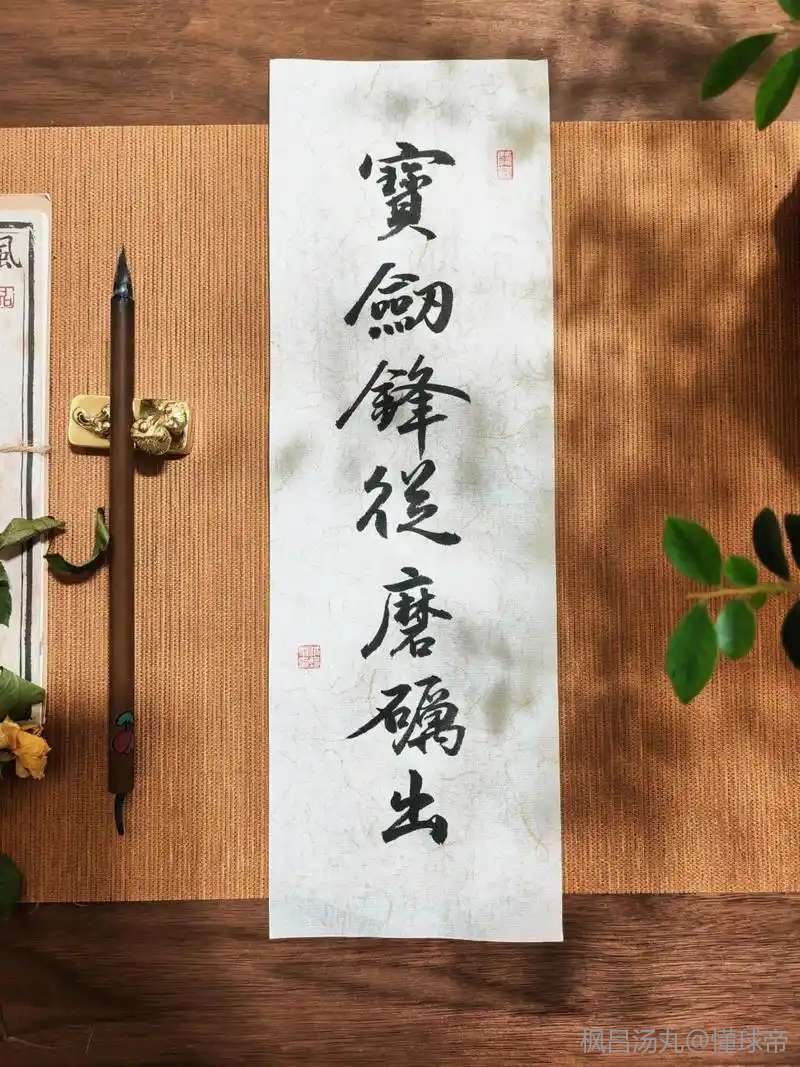 寶劒鋒從磨礪出
風
枫吕汤丸@懂球帝